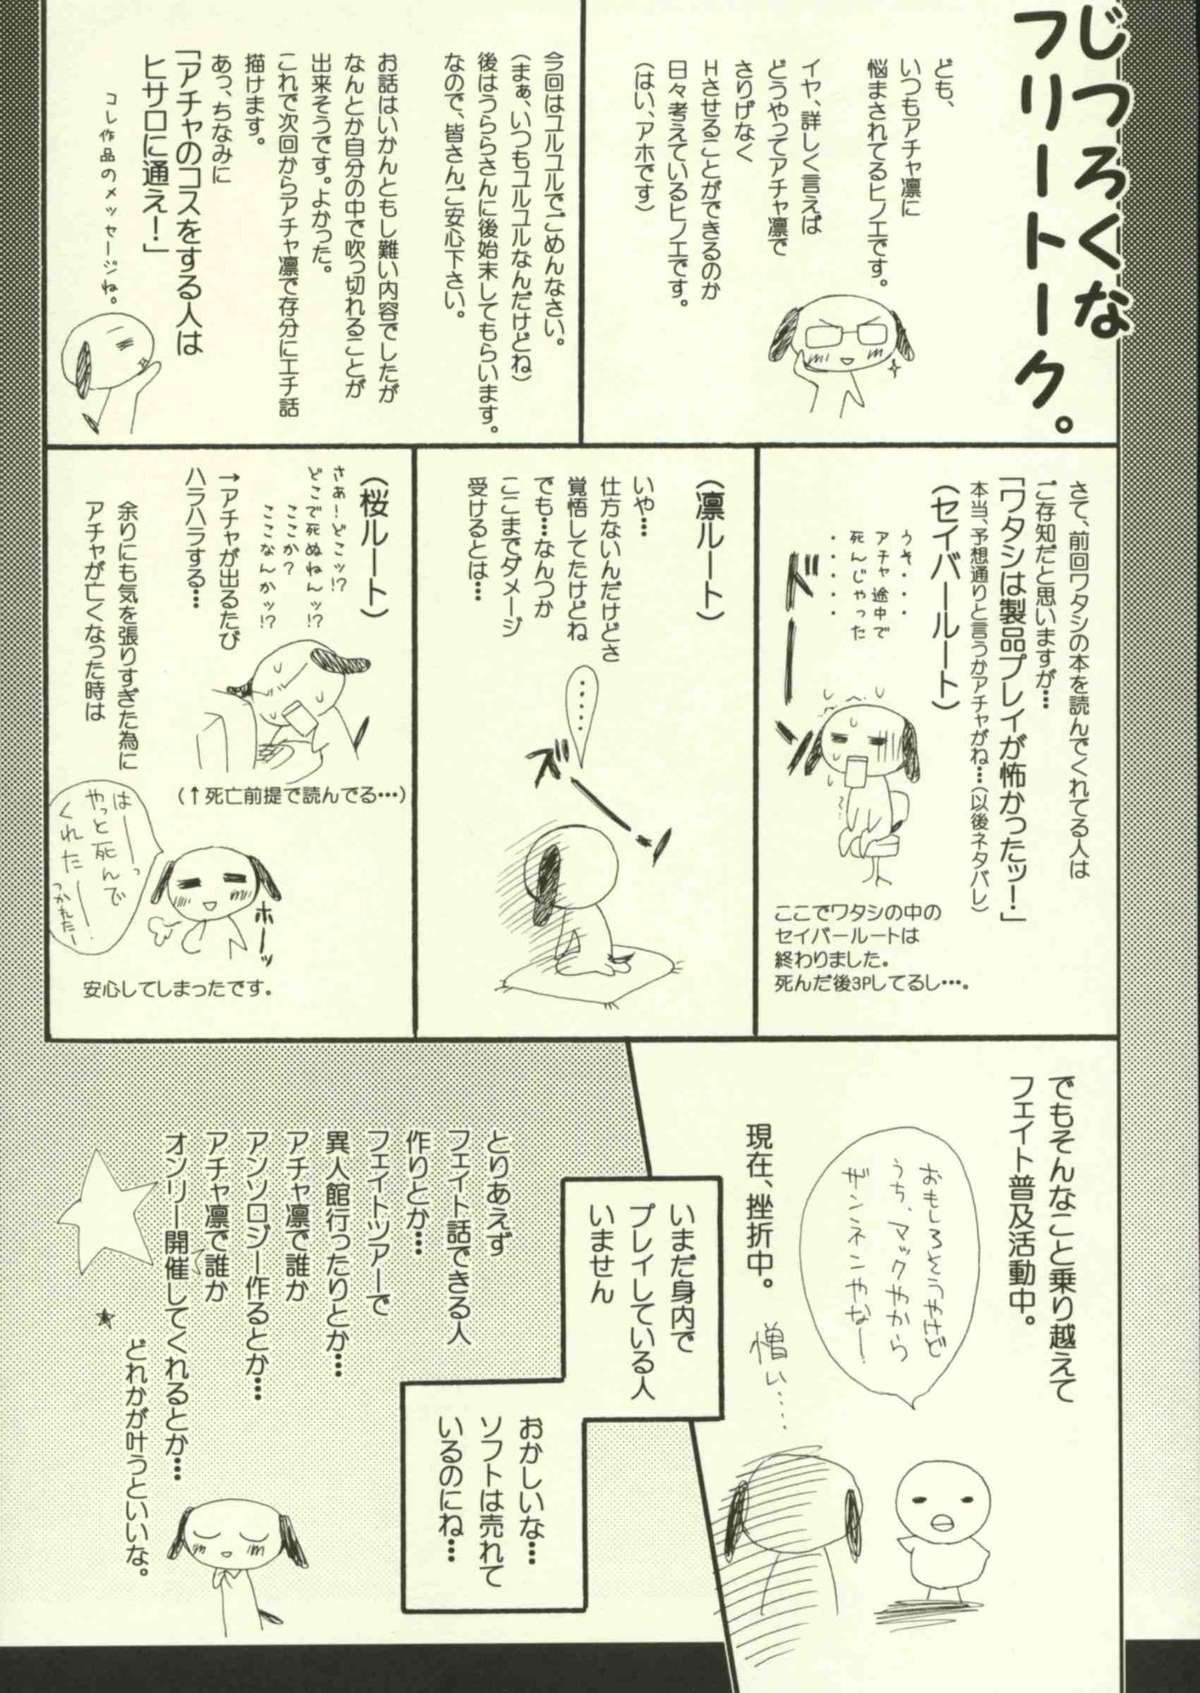 じつろくな
フリートーク。
ども、
いつもアチャ凛に
悩まされてるヒノエです。
イヤ、詳しく言えば
どうやってアチャ凛で
さりげなく
Hさせることができるのか
日々考えているヒノエです。
(はい、アホです)
今回はユルユルでごめんなさい。
(まぁ、いつもユルユルなんだけどね)
後はうららさんに後始末してもらいます。
なので、皆さんご安心下さい。
お話はいかんともし難い内容でしたが
なんとか自分の中で吹っ切れることが
出来そうです。よかった。
これで次回からアチャ凛で存分にエチ話
描けます。
あっ、ちなみに
「アチャのコスをする人は
ヒサロに通え!」
コレ作品のメッセージね。
さて、前回ワタシの本を読んでくれてる人は
ご存知だと思いますが…
「ワタシは製品プレイが怖かったッ!」
本当、予想通りと言うかアチャがね…(以後ネタバレ)
(セイバールート)
うそ・・・
アチャ途中で
死んじゃった
・・・・・
ドーーン
ここでワタシの中の
セイバールートは
終わりました。
死んだ後3Pしてるし…。
(凛ルート)
いや…
仕方ないんだけどさ
覚悟してたけどね
でも…なんつか
ここまでダメージ
受けるとは…
・・・・・
ズーーン
(桜ルート)
さあ!どこッ!?
どこで死ぬねんッ!?
ここか?
ここなんかッ!?
→アチャが出るたび
ハラハラする…
(↑死亡前提で読んでる…)
余りにも気を張りすぎた為に
アチャが亡くなった時は
はーーっ
やっと死んで
くれたーー
つかれたー
ホーッ
安心してしまったです。
でもそんなこと乗り越えて
フェイト普及活動中。
おもしろそうやけど
うち、マックやから
ザンネンやなー!
現在、挫折中。
憎い……
いまだ身内で
プレイしている人
いません
おかしいな…
ソフトは売れて
いるのにね…
とりあえず
フェイト話できる人
作りとか…
フェイトツアーで
異人館行ったりとか…
アチャ凛で誰か
アンソロジー作るとか…
アチャ凛で誰か
オンリー開催してくれるとか…
どれかが叶うといいな。